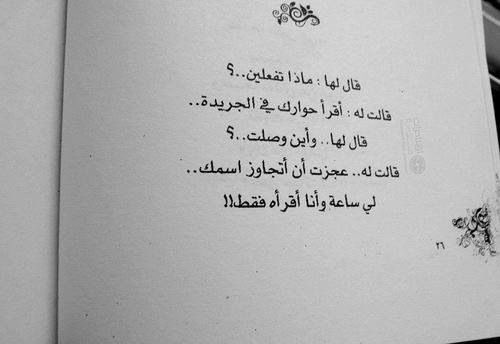 قال لها : ماذا تفعلين..؟
قالت له : أقرأ حوارك في الجريدة..
قال لها.. وأين وصلت..؟
قالت له.. عجزت أن أتجاوز اسمك..
لي ساعة وأنا أقرأه فقط!!
٢٦